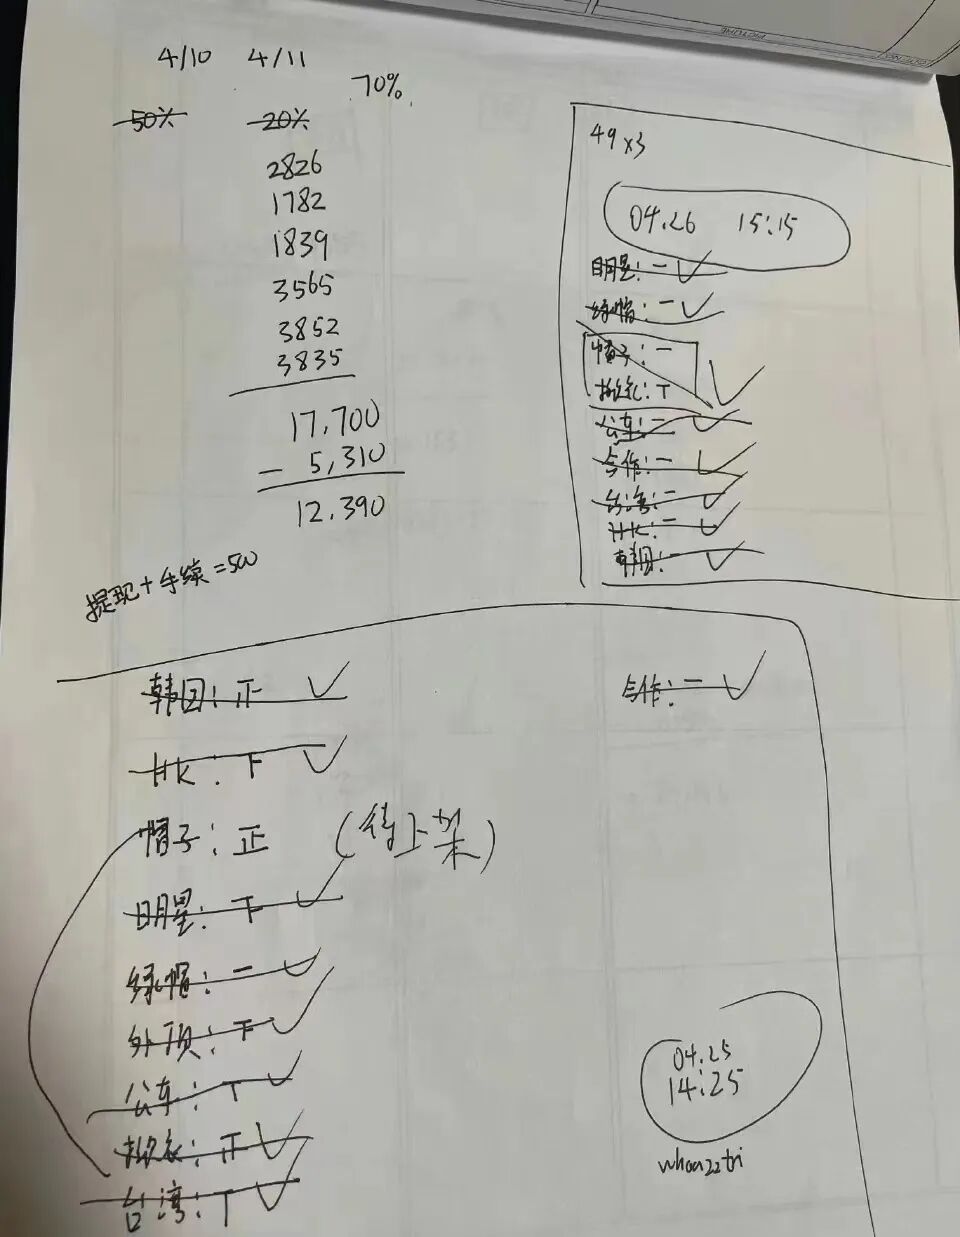 4/10 4/11
70%
50% 20%
2826
1782
1839
3565
3852
3835
17,700
- 5,310
12,390
提现+手续=500
49x3
04.26 15:15
明星:一
绿帽:一
帽子:一
公车:一
合作:一
台湾:一
HK:一
韩国:一
韩国:正
HK:下
帽子:正 (待上架)
明星:下
绿帽:一
外顶:下
公车:丅
台湾:丅
合作:一
04.25
14:25